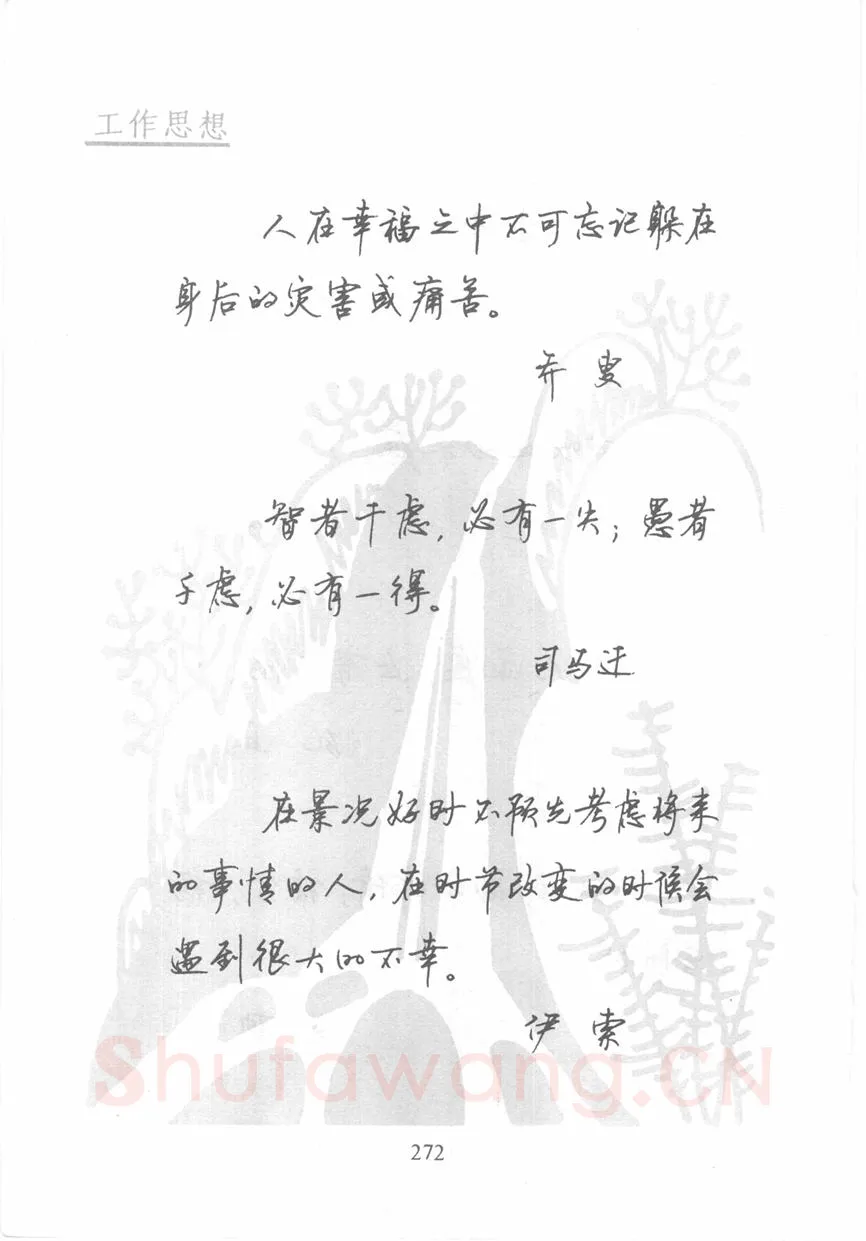 工作思想
人在幸福之中不可忘记躲在
身后的灾害或痛苦。
乔叟
智者千虑，必有一失；愚者
千虑，必有一得。
司马迁
在景况好时不预先考虑将来
的事情的人，在时节改变的时候会
遇到很大的不幸。
伊索
Shufawang.CN
272